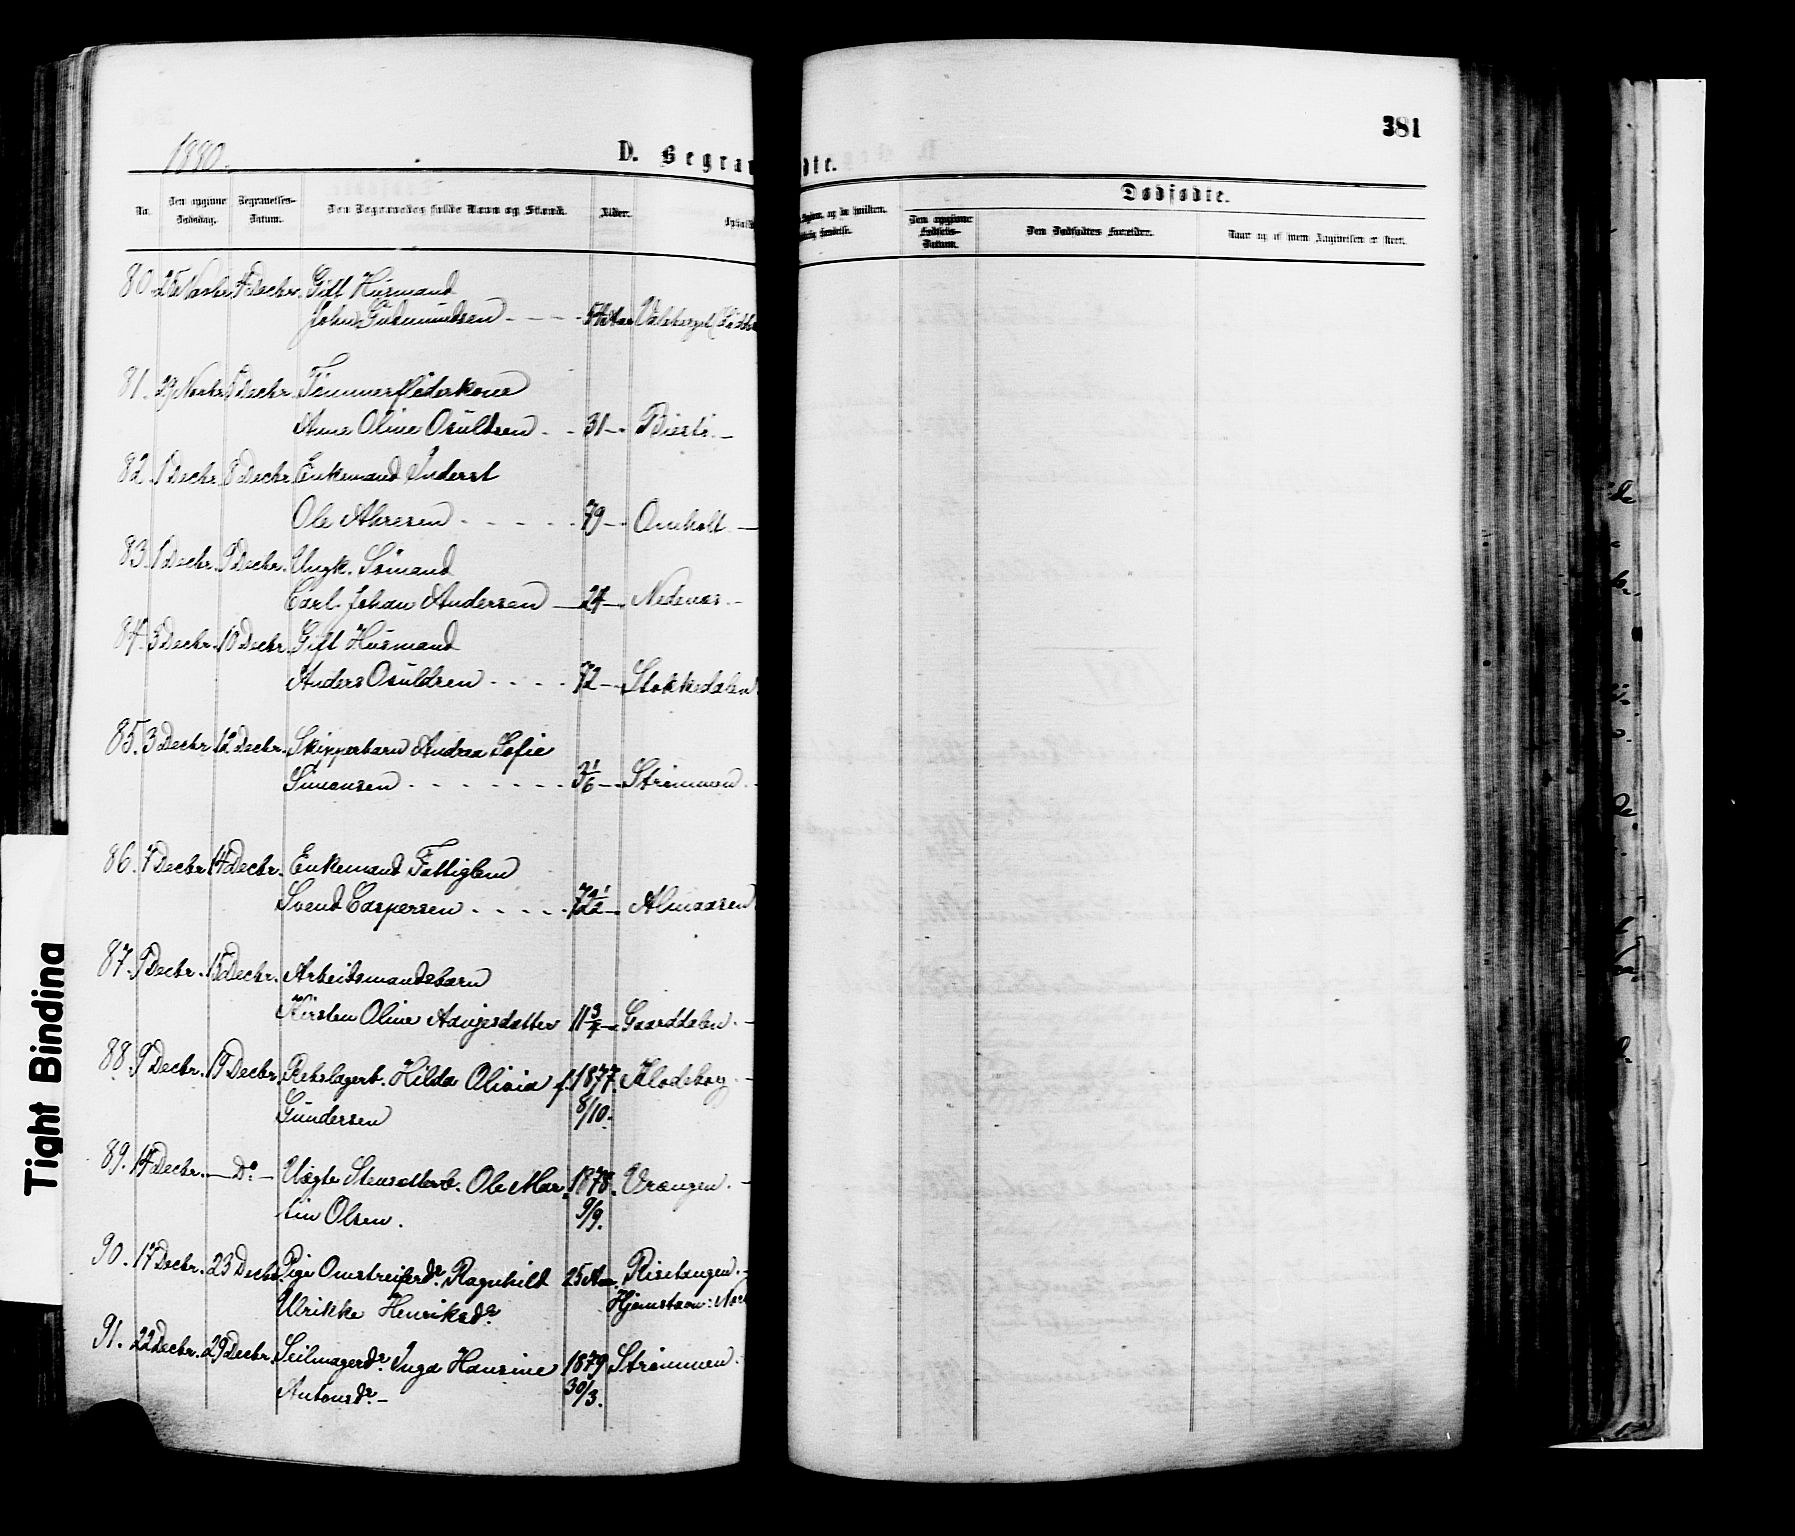 381
1880.
D. Begrav
dte.
Dødfødte.
No.
Den opgivne Dødsdag.
Begravelses-Datum.
Den Begravedes fulde Navn og Stand.
Alder.
Den opgivne Fødsels-Datum.
Den Dødfødtes Forældre.
Naar og af hvem Angivelsen er skeet.
80. 25 Novbr. 4 Decbr. Gift Husmand
John Gudmundsen 54 Aar
81. 29 Novbr. Decbr. Tømmerfløderkone
Anne Oline Osuldsen 31
82. 1 Decbr. 8 Decbr. Enkemand Inderst
Ole Akresen 79 Omholt
83. 1 Decbr. 9 Decbr. Ungk. Sømand
Carl Johan Andersen 24 Nedenæs.
84. 3 Decbr. 10 Decbr. Gift Husmand
Anders Osuldsen 72 Stokkedalen
85. 3 Decbr. 12 Decbr. Skipperbarn Andrea Sofie
Simonsen 3 1/6 Strømmen
86. 7 Decbr. 14 Decbr. Enkemand Fattiglem
Svend Caspersen 72 1/2 Almaasen
87. 9 Decbr. 15 Decbr. Arbeidsmandsbarn
Kirsten Oline Aanjesdatter 11 3/4 Gaarddalen.
88. 9 Decbr. 19 Decbr. Rebslagerb. Hilda Olivia f. 1877. Klodeborg
Gundersen 8/10.
89. 14 Decbr. — Do — Uægte Ole Mar- 1878. Vrængen.
tin Olsen. 9/9.
90. 17 Decbr. 23 Decbr. Pige Omstreiferdr. Ragnhild 25 Aar. Risetangen.
Ulrikke Henriksdr. Hjemstavn:
91. 22 Decbr. 29 Decbr. Seilmagerdr. Inga Hansine 1879 Strømmen.
Antonsdr. 30/3.
Tight Binding